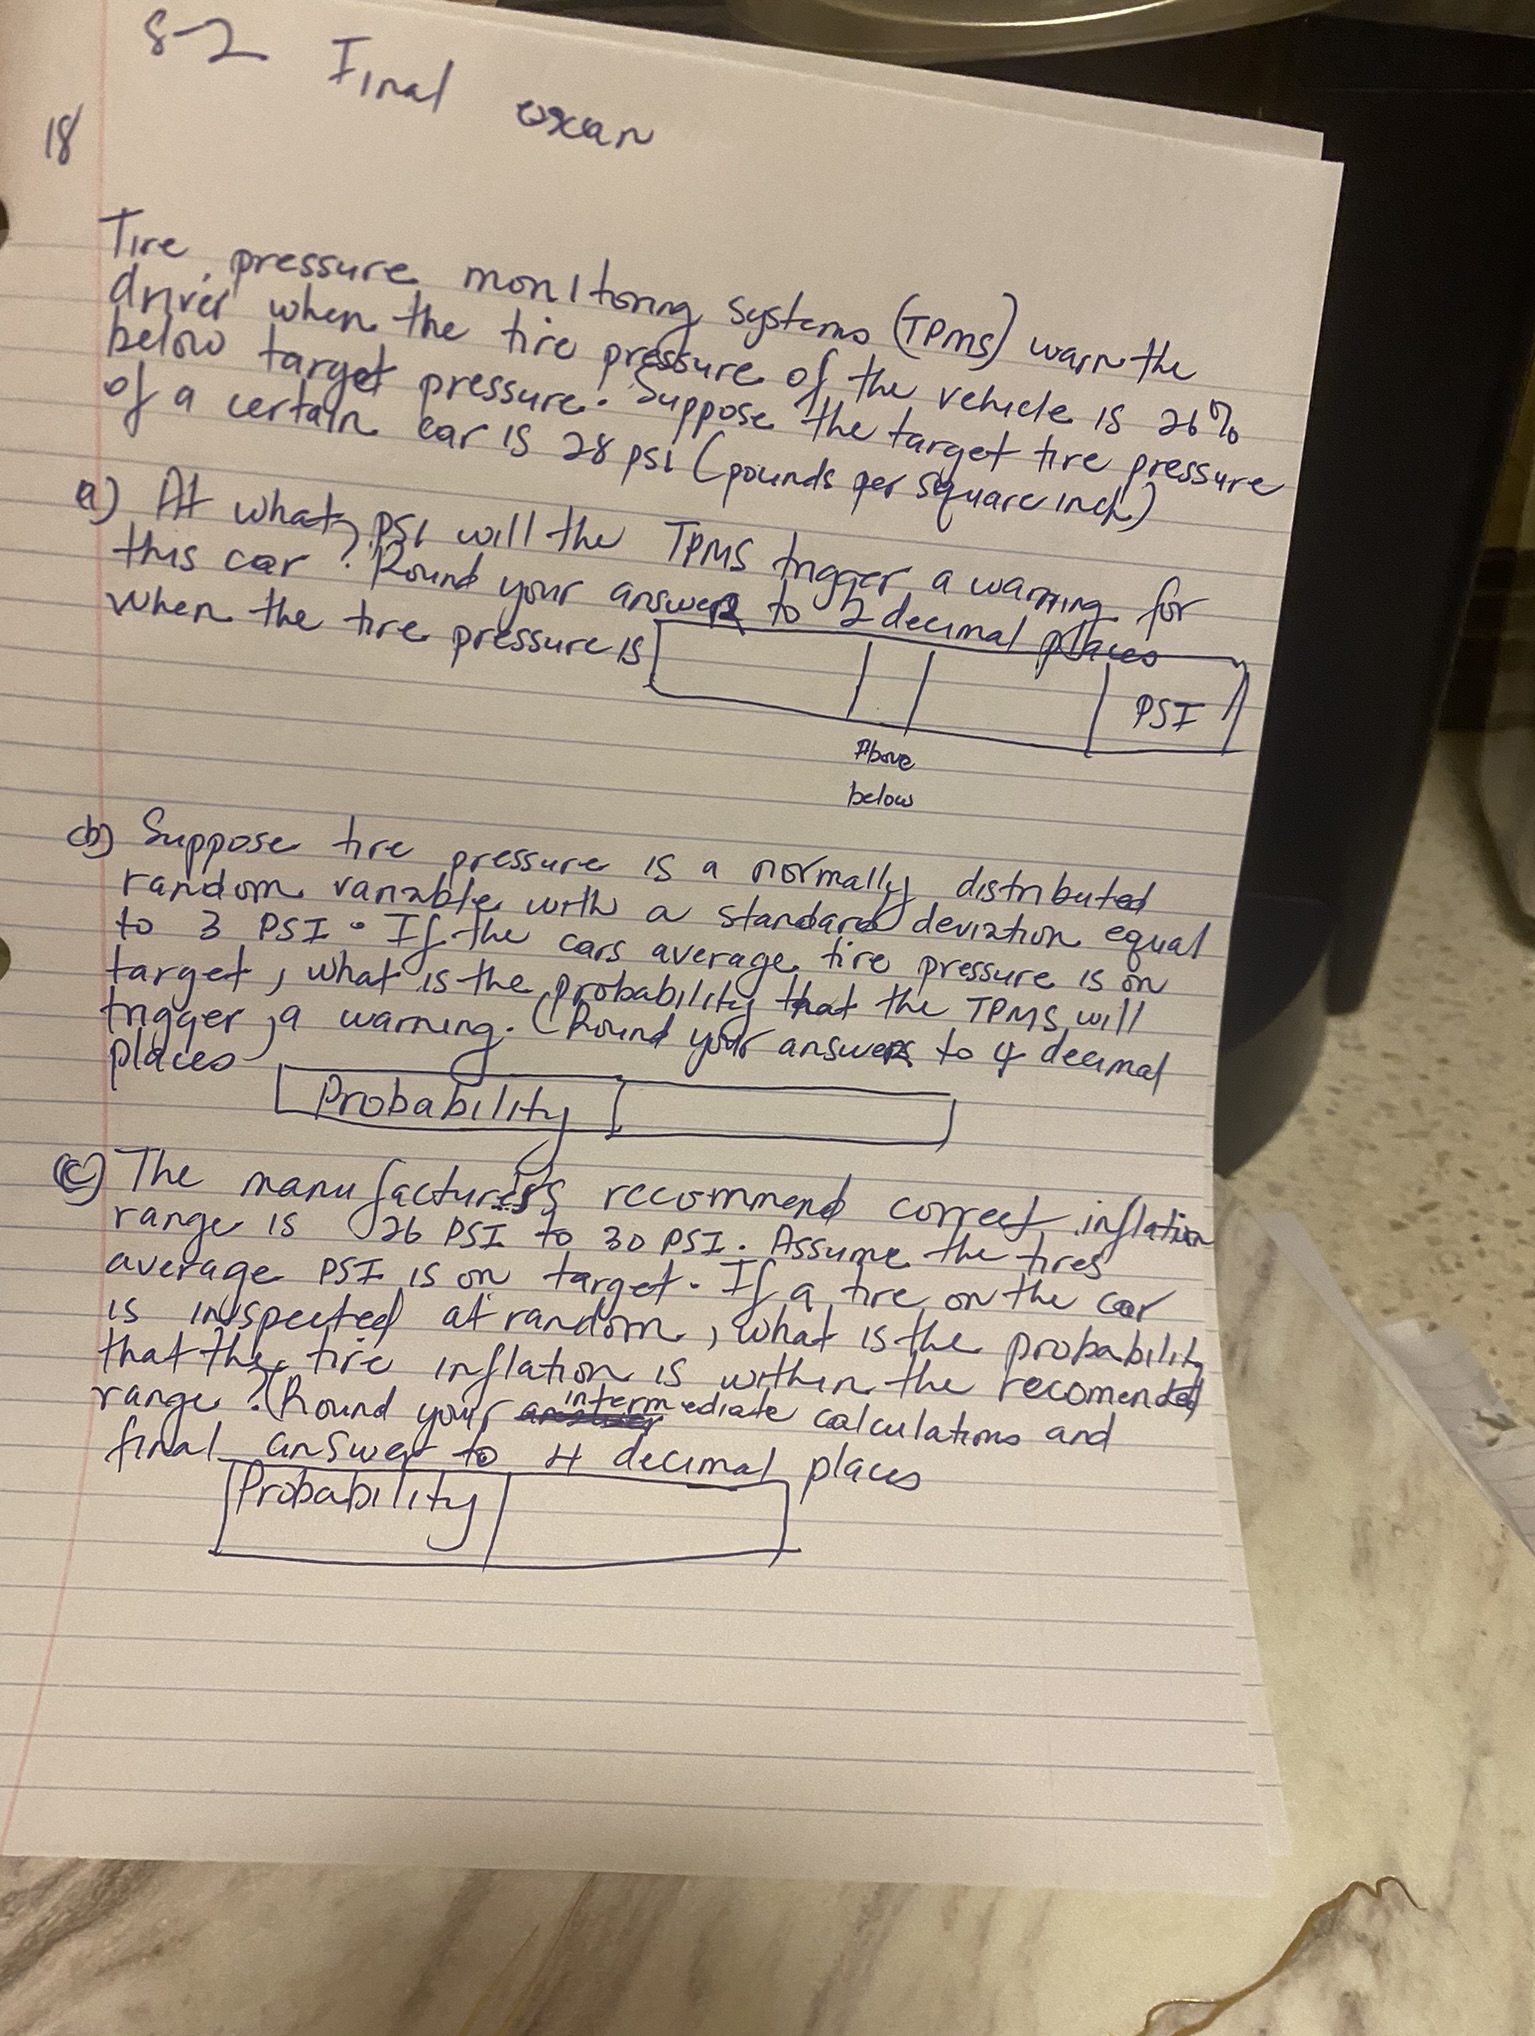 8-2 Final exan
18
Tire pressure monitoring systems (TPMS) warn the
driver when the tire pressure of the vehicle is 26%
below target pressure. Suppose the target tire pressure
of a certain car is 28 psi (pounds per square inch)
a) At what psi will the TPMS trigger a warning for
this car? Round your answer to 2 decimal places
when the tire pressure is
PSI
Above
below
b) Suppose tire pressure is a normally distributed
random variable with a standard deviation equal
to 3 PSI. If the cars average tire pressure is on
target, what is the probability that the TPMS will
trigger a warning. (Round your answers to 4 decimal
places
Probability
(c) The manufacturer's recommend correct inflation
range is 26 PSI to 30 PSI. Assume the tires
average PSI is on target. If a tire on the car
is inspected at random, what is the probability
that the tire inflation is within the recomended
range? (Round your intermediate calculations and
final answer to 4 decimal places
Probability